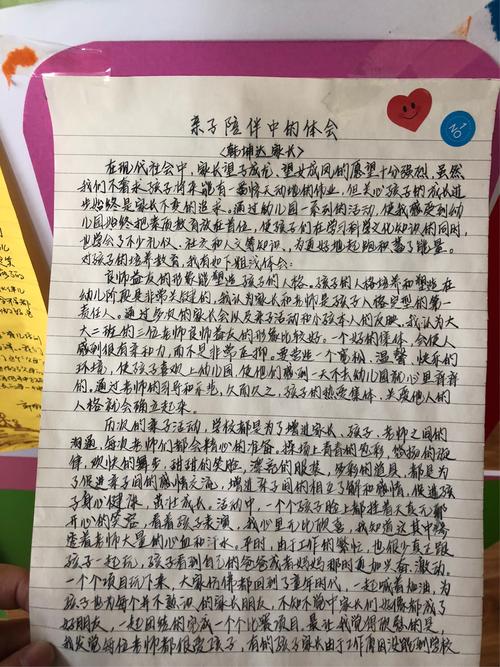 亲子陪伴中的体会
《韩坤达家长》
NO 1
在现代社会中，家长望子成龙、望女成凤的愿望十分强烈，虽然
我们不要求孩子将来能有一番惊天动地的伟业，但关心孩子的成长进
步始终是家长不变的追求。通过幼儿园一系列的活动，使我感受到幼
儿园始终把素质教育放在首位，使孩子们在学习科学文化知识的同时，
也学会了不少礼仪、社交和人文等知识，为更好地起跑积蓄了能量。
对孩子的培养教育，我有如下粗浅体会：
良师益友的形象能塑造孩子的人格。孩子的人格培养和塑造在
幼儿阶段是非常关键的，我认为家长和老师是孩子人格定型的第一
责任人。通过多次的家长会以及亲子活动和小孩本人的反映，我认为大
大二班的三位老师良师益友的形象比较好，一个好的集体，会使人
感到很有亲和力，而不是非常压抑。要营造一个宽松、温馨、快乐的
环境，使孩子喜欢上幼儿园，使他们感到一天不去幼儿园就心里痒痒
的。通过老师的引导和年步，久而久之，孩子的热爱集体、关爱他人的
人格就会确立起来。
历次的亲子活动，学校都是为了增进家长、孩子、老师之间的
沟通，每次老师们都会精心的准备。操场上青青的色彩，悠扬的旋
律，欢快的舞步，甜甜的笑脸，漂亮的服装，多彩的道具，都是为
了促进亲子间的感情交流，增进亲子间的相互了解和感情，促进孩
子身心健康，茁壮成长。活动中，一个个孩子脸上都挂着天真无邪
开心的笑容，看着孩子表演，我心里无比欣慰，我知道这其中
着老师大量的心血和汗水。平时，由于工作的繁忙，也很少真正跟
孩子一起玩，孩子看到自己的爸爸或者妈妈那时更加兴奋、激动，
一个个项目玩下来，大家仿佛都回到了童年时代，一起喊着加油，为
孩子也为每个并不熟识的家长朋友，不知不觉中家长们也像都成了
好朋友，一起团结的完成一个个比赛项目。最让我觉得欣慰的是
我发觉每位老师都很爱孩子，有的孩子家长由于工作原因没能到学校